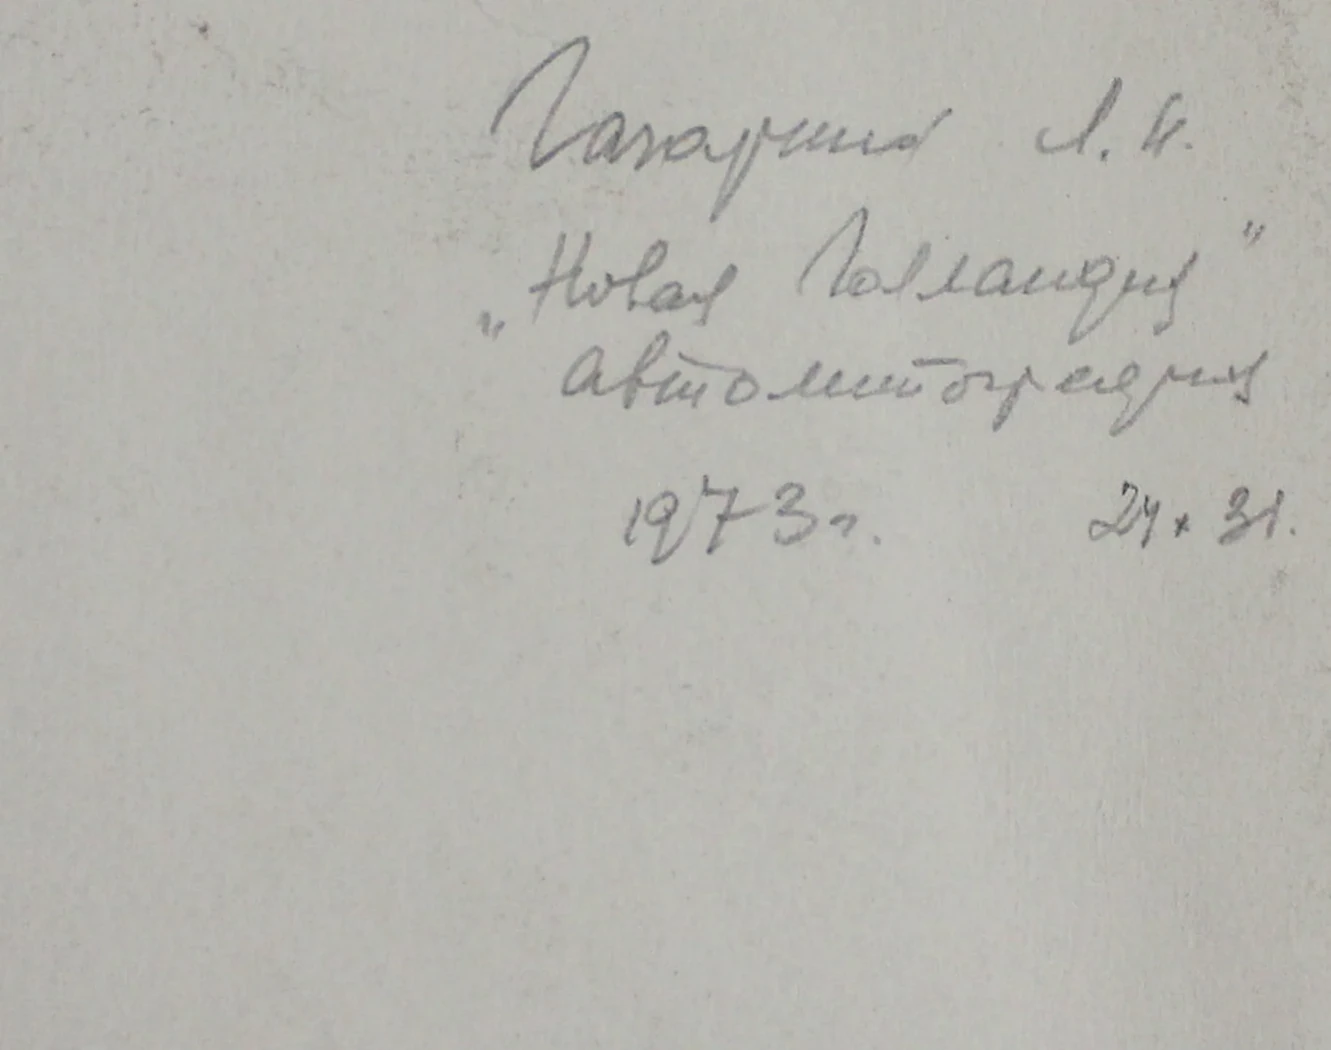 Гагарина Л. И.
„Новая Голландия"
автолитография
1973 г. 24 x 31.